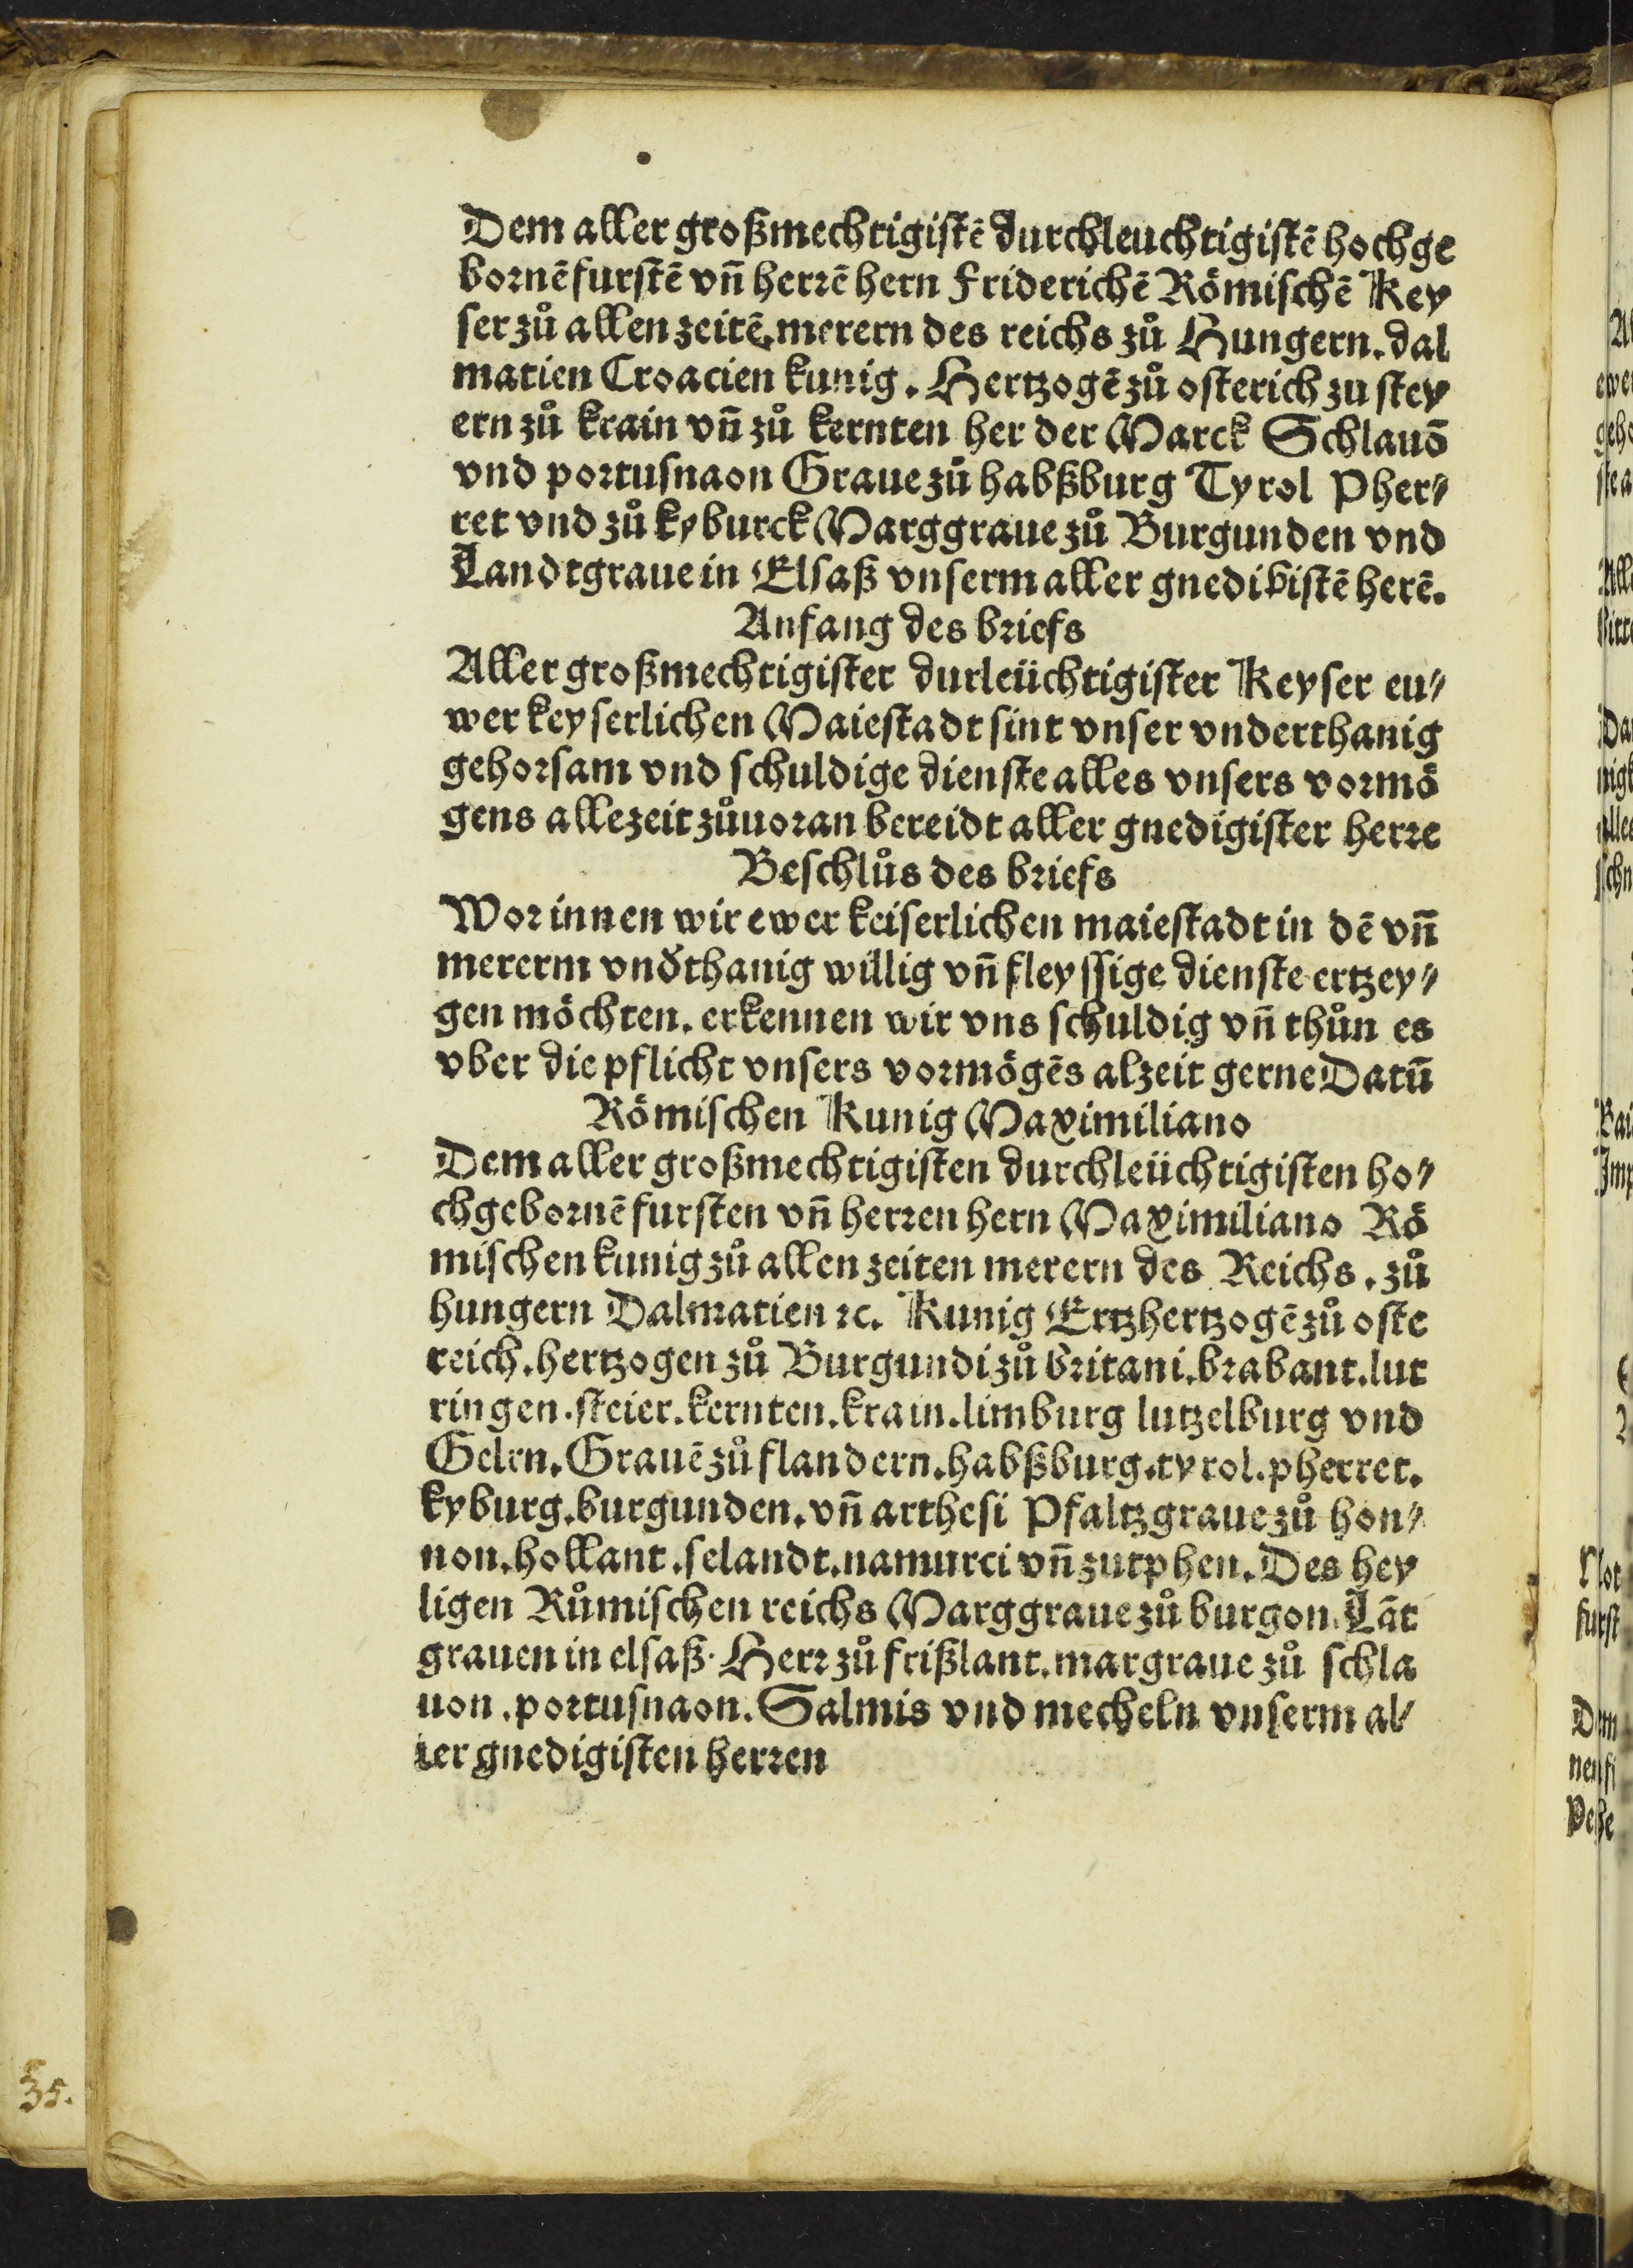 Dem aller großmechtigistē durchleuchtigistē hochge
bornē furstē vñ herrē hern Friderichē Römischē Key
ser zů allen zeitē. merern des reichs zů Hungern. dal
matien Croacien kunig. Hertzogē zů osterich zu stey
ern zů krain vñ zů kernten her der Marck Schlauō
vnd portusnaon Graue zů habßburg Tyrol Pher⸗
ret vnd zů kyburck Marggraue zů Burgunden vnd
Landtgraue in Elsaß vnserm aller gnedibistē herē.
Anfang des briefs
Aller großmechtigister durleüchtigister Keyser eu⸗
wer keyserlichen Maiestadt sint vnser vnderthanig
gehorsam vnd schuldige dienste alles vnsers vormö
gens allezeit zůuoran bereidt aller gnedigister herre
Beschlůs des briefs
Worinnen wir ewer keiserlichen maiestadt in dē vñ
mererm vnd̄thanig willig vñ fleyssige dienste ertzey⸗
gen möchten. erkennen wir vns schuldig vñ thůn es
vber die pflicht vnsers vormögēs alzeit gerne Datū
Römischen Kunig Maximiliano
Dem aller großmechtigisten durchleüchtigisten ho⸗
chgebornē fursten vñ herren hern Maximiliano Rö
mischen kunig zů allen zeiten merern des Reichs. zů
hungern Dalmatien ⁊c. Kunig Ertzhertzogē zů oste
reich. hertzogen zů Burgundi zů britani. brabant. lut
ringen. steier. kernten. krain. limburg lutzelburg vnd
Gelrn. Grauē zů flandern. habßburg. tyrol. pherret.
kyburg. burgunden. vñ arthesi Pfaltzgraue zů hon⸗
non. hollant. selandt. namurci vñ zutphen. Des hey
ligen Růmischen reichs Marggraue zů burgon. Lāt
grauen in elsaß. Herr zů frißlant. margraue zů schla
uon. portusnaon. Salmis vnd mecheln vnserm al⸗
ler gnedigisten herren
35.